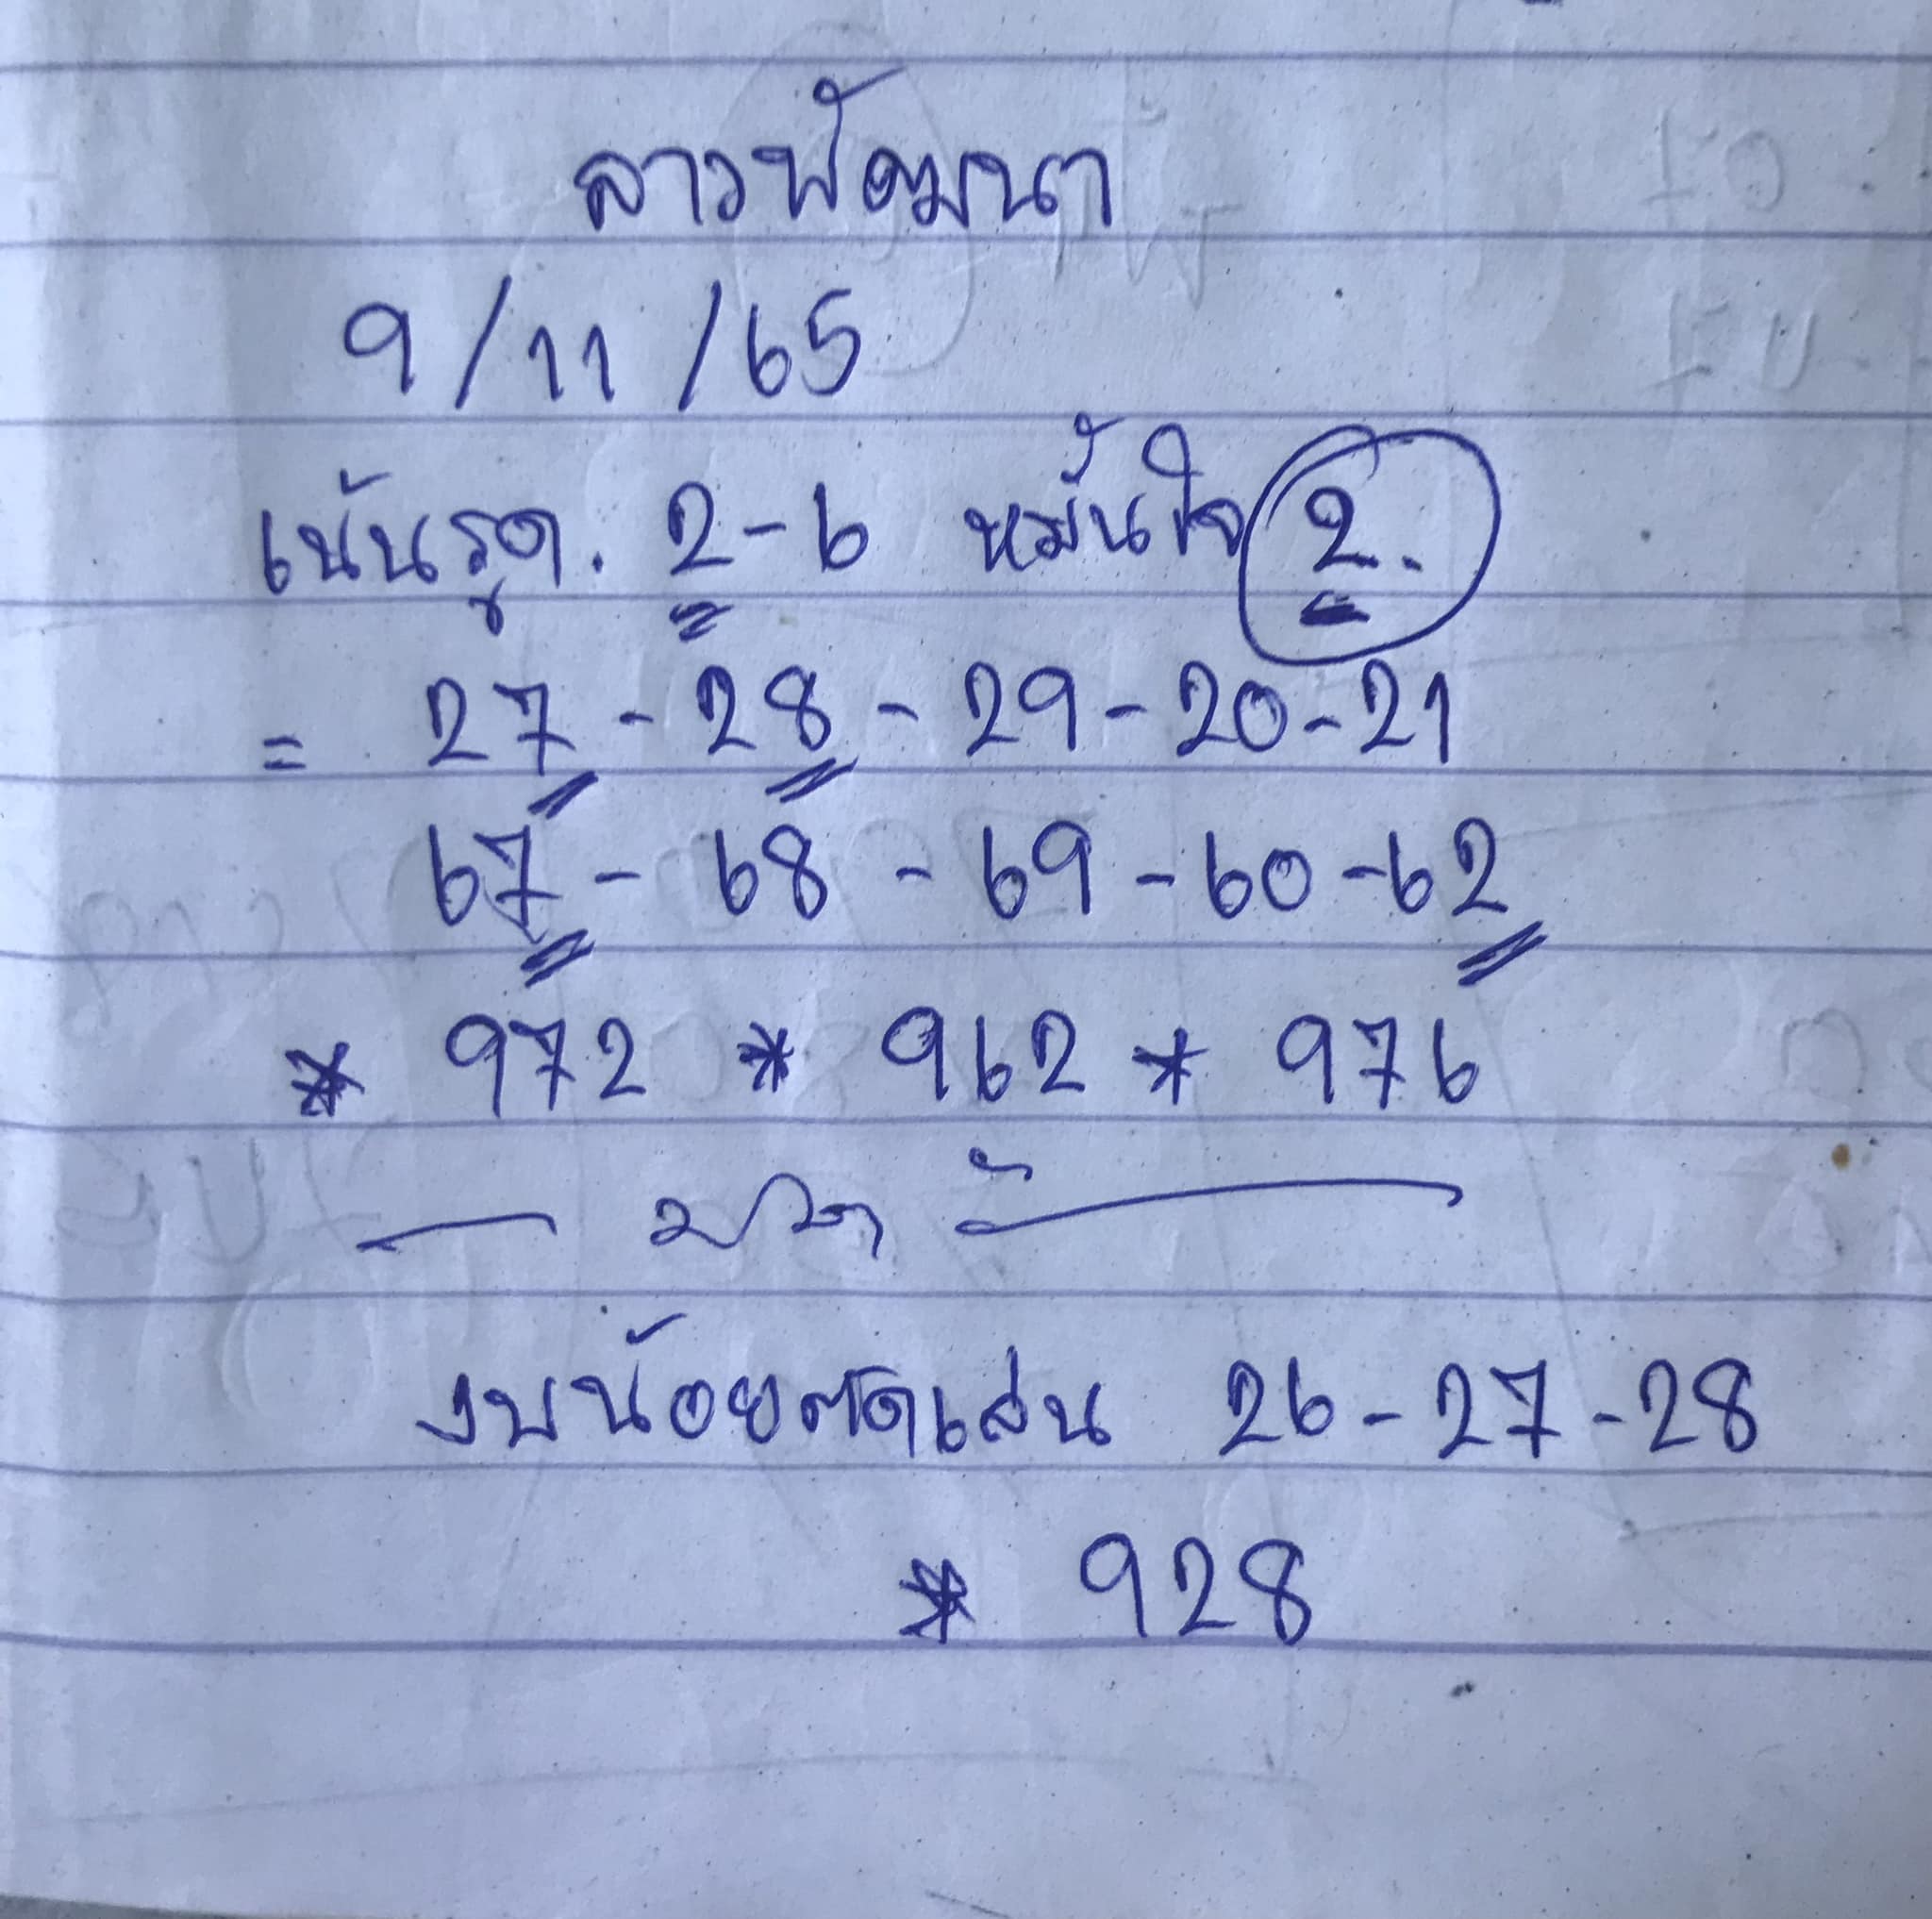 ลาวพัฒนา
9/11/65
เน้นรูด. 2-6 หมั้นใจ 2.
= 27 - 28 - 29 - 20 - 21
67 - 68 - 69 - 60 - 62
* 972 * 962 * 976
งบน้อยตัดเล่น 26 - 27 - 28
* 928